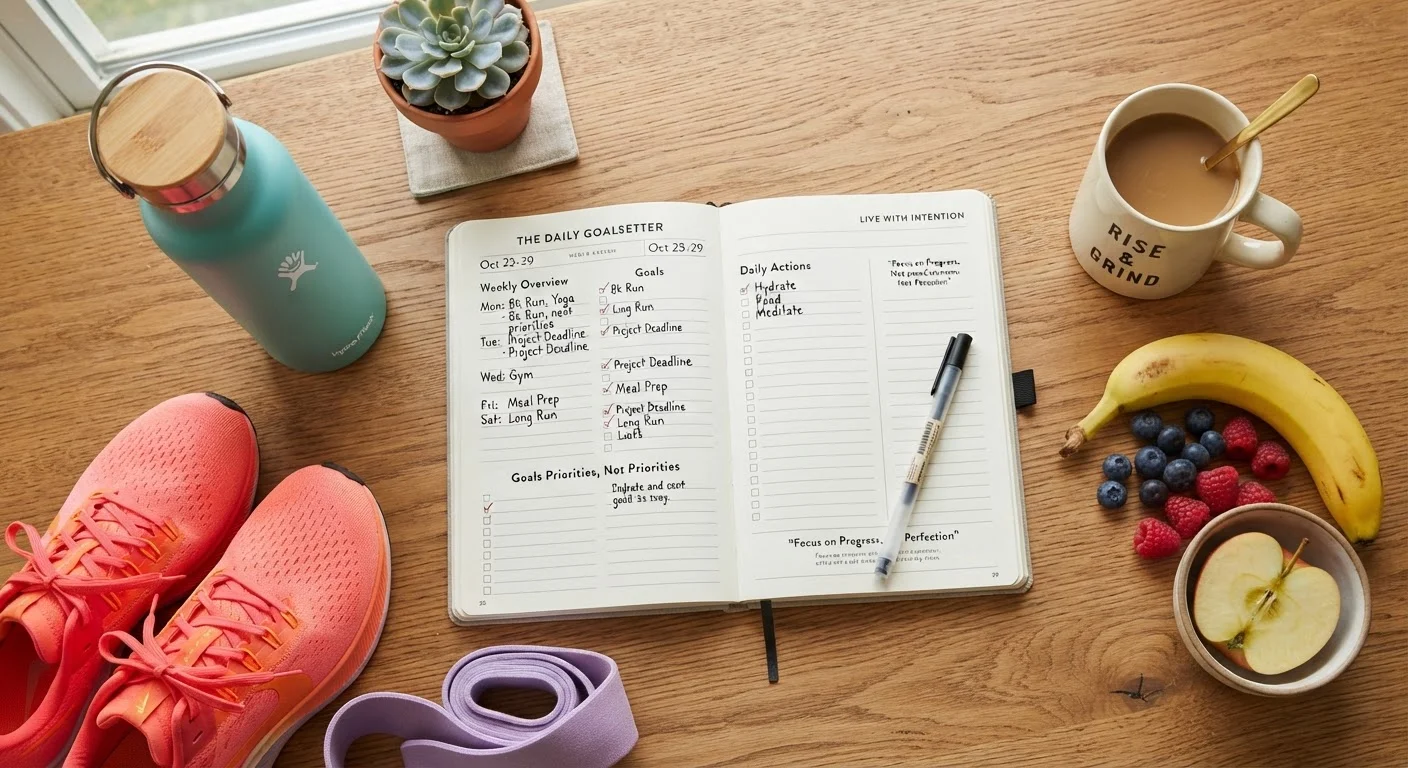 THE DAILY GOALSETTER
Oct 23-29
Oct 23/29
Weekly Overview
Mon: 8k Run, Yoga
- 8k Run,
priorities
Tue: Project Deadline
· Project Deadline
Wed: Gym
Fri: Meal Prep
Sat: Long Run
Goals
8k Run
Long Run
Project Deadline
Project Deadline
Meal Prep
Project Deadline
Long Run
Goals Priorities, Not Priorities
and
good
LIVE WITH INTENTION
Daily Actions
Hydrate
Meditate
"Focus on Progress,
Not
"Focus on Progress, Perfection"
RISE
&
GRIND